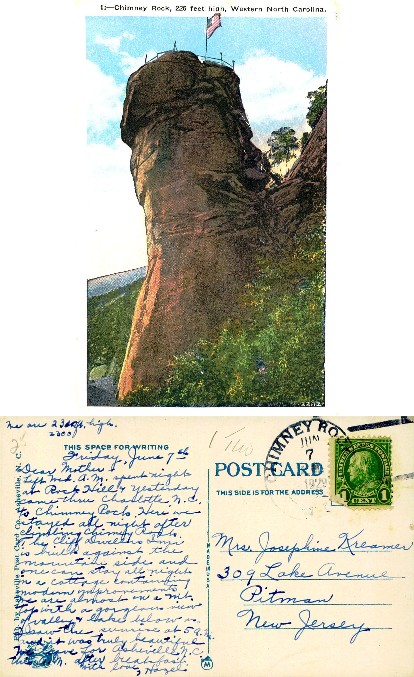 1:—Chimney Rock, 225 feet high, Western North Carolina.
We are 2300 ft. high.
2300
THIS SPACE FOR WRITING
Friday, June 7th
Dear Mother:
Left Wed. A.M. spent night
at Rock Hill. Yesterday
came thru Charlotte, N.C.
to Chimney Rock. Here we
stayed all night after
climbing Chimney Rock.
The Cliff Dwellers Inn
is built against the
mountain side and
one can stay all night
in a cottage containing
modern improvements
We are almost on a mt.
top with a gorgeous view
of valley & lake below us.
Saw the sunrise at 5 A.M.
and it was truly beautiful
We leave for Asheville, N.C.
this A.M. after breakfast.
With love, Hazel
POST CARD
THIS SIDE IS FOR THE ADDRESS
CHIMNEY ROCK
JUN
7
1929
1 CENT 1
MADE IN U.S.A.
M
Mrs. Josephine Kreamer
309 Lake Avenue
Pitman
New Jersey